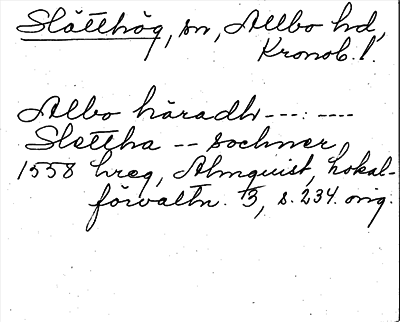 Slätthög, sn, Allbo hd,
Kronob. l.
Albo häradh ---: ----
Slettha -- sochner
1558 hreg, Almquist, Lokal-
förvaltn. 3, s. 234. orig.